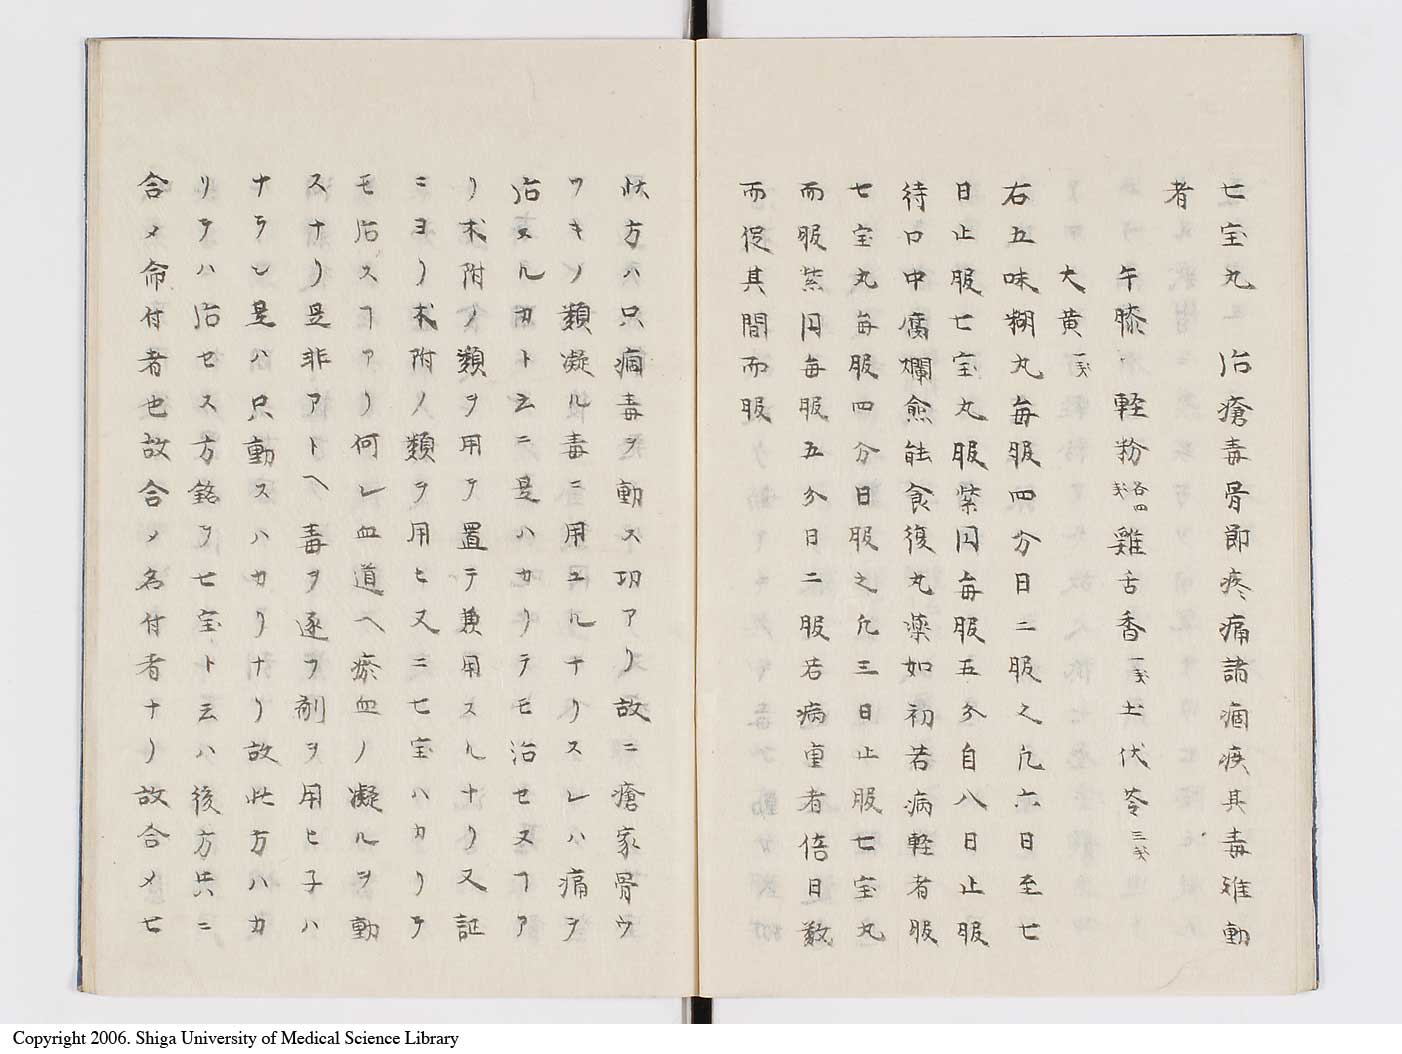 七宝丸　治瘡毒骨節疼痛諸痼疾其毒難動
者
午膝　軽粉各四戔　雞舌香一戔　土伏苓三戔
大黄一戔
右五味糊丸毎服四分日二服之凢六日至七
日止服七宝丸服紫円毎服五分自八日止服
待口中腐爛愈能食復丸薬如初若病軽者服
七宝丸毎服四分日服之凢三日止服七宝丸
而服紫円毎服五分日二服若病重者倍日数
而促其間而服
此方ハ只痼毒ヲ動ス功アリ故ニ瘡家骨ウ
ツキノ類凝ル毒ニ用ユルナリスレハ痛ヲ
治スルカト云ニ是ハカリテモ治セヌヿア
リ朮附ノ類ヲ用テ置テ兼用スルナリ又証
ニヨリ朮附ノ類ヲ用ヒ又ニ七宝ハカリテ
モ治スヿアリ何レ血道ヘ瘀血ノ凝ルヲ動
スナリ是非アトヘ毒ヲ逐フ剤ヲ用ヒ子ハ
ナラン是ハ只動スハカリナリ故此方ハカ
リテハ治セス方銘ヲ七宝ト云ハ後方共ニ
合メ命付者也故合メ名付者ナリ故合メ七
Copyright 2006. Shiga University of Medical Science Library